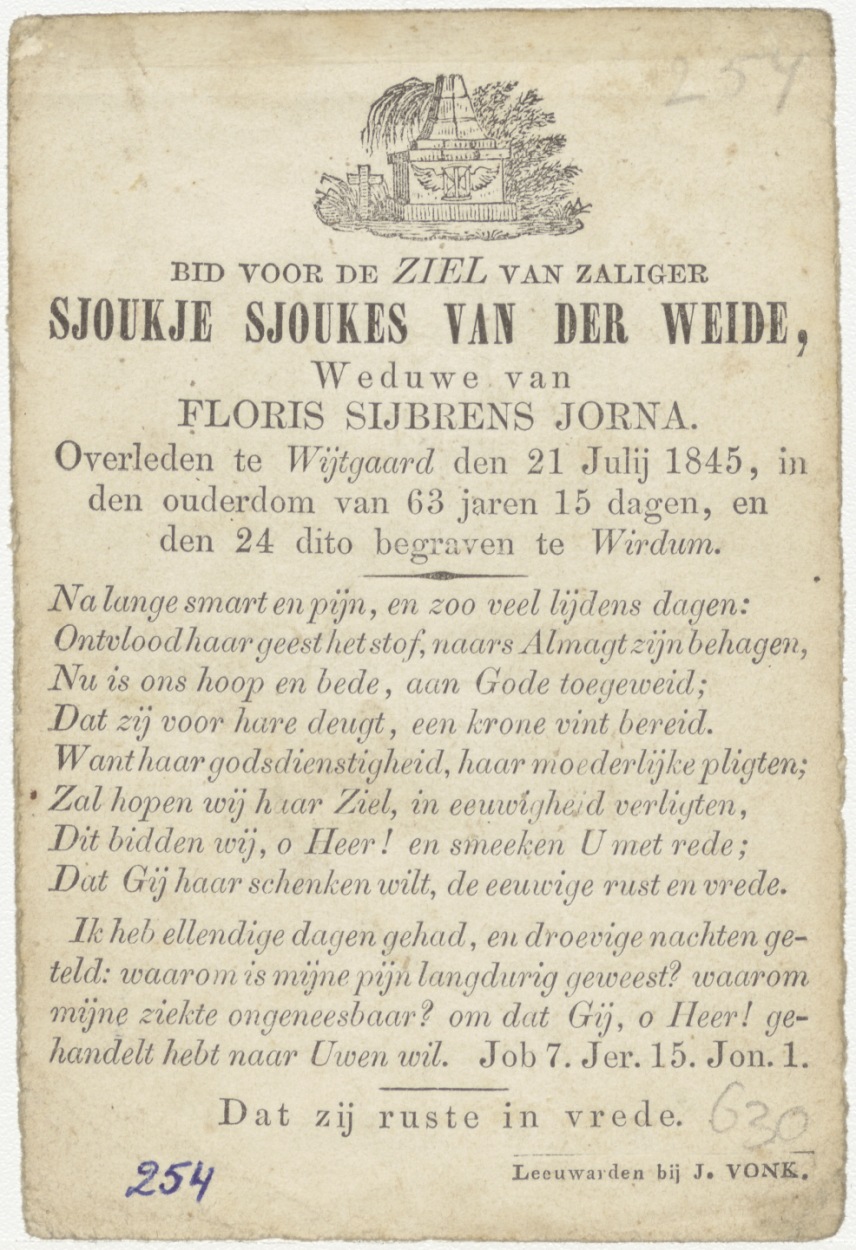 254
BID VOOR DE ZIEL VAN ZALIGER
SJOUKJE SJOUKES VAN DER WEIDE,
Weduwe van
FLORIS SIJBRENS JORNA.
Overleden te Wijtgaard den 21 Julij 1845, in
den ouderdom van 63 jaren 15 dagen, en
den 24 dito begraven te Wirdum.
Na lange smart en pijn, en zoo veel lijdens dagen:
Ontvlood haar geest het stof, naars Almagt zijn behagen,
Nu is ons hoop en bede, aan Gode toegeweid;
Dat zij voor hare deugt, een krone vint bereid.
Want haar godsdienstigheid, haar moederlijke pligten;
Zal hopen wij haar Ziel, in eeuwigheid verligten,
Dit bidden wij, o Heer! en smeeken U met rede;
Dat Gij haar schenken wilt, de eeuwige rust en vrede.
Ik heb ellendige dagen gehad, en droevige nachten ge-
teld: waarom is mijne pijn langdurig geweest? waarom
mijne ziekte ongeneesbaar? om dat Gij, o Heer! ge-
handelt hebt naar Uwen wil. Job 7. Jer. 15. Jon. 1.
Dat zij ruste in vrede.
630
254
Leeuwarden bij J. VONK.